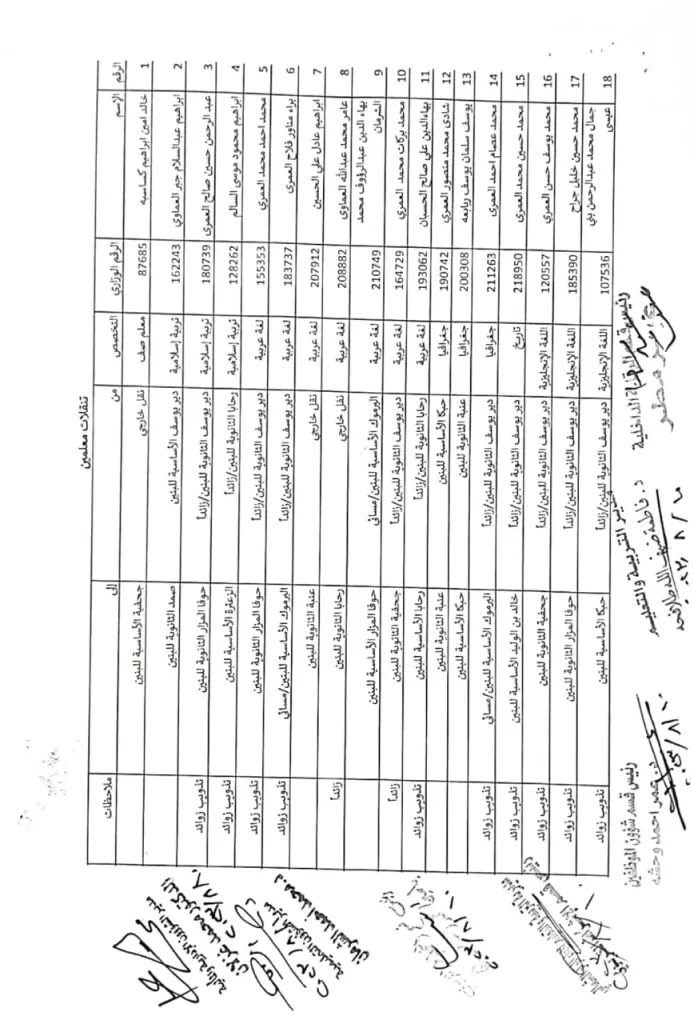 تنقلات معلمين
الرقم الإسم الرقم الوزاري التخصص من إلى ملاحظات
1 خالد امين ابراهيم كساسبه 87685 معلم صف نقل خارجي جحفية الأساسية للبنين
2 ابراهيم عبدالسلام جبر العماوي 162243 تربية إسلامية دير يوسف الأساسية للبنين صمد الثانوية للبنين
3 عبد الرحمن حسين صالح العمري 180739 تربية إسلامية دير يوسف الثانوية للبنين/زائداً حوفا المزار الثانوية للبنين تذويب زوائد
4 ابراهيم محمود موسى السالم 128262 تربية إسلامية رحابا الثانوية للبنين/زائداً الزعترة الأساسية للبنين تذويب زوائد
5 محمد احمد محمد العمري 155353 لغة عربية دير يوسف الثانوية للبنين/زائداً حوفا المزار الثانوية للبنين تذويب زوائد
6 براء مناور فلاح العمري 183737 لغة عربية دير يوسف الثانوية للبنين/زائداً اليرموك الأساسية للبنين/مسائي تذويب زوائد
7 ابراهيم عادل علي الحسين 207912 لغة عربية نقل خارجي عنبة الثانوية للبنين
8 عامر محمد عبدالله العماوي 208882 لغة عربية نقل خارجي رحابا الثانوية للبنين زائداً
9 بهاء الدين عبدالرؤوف محمد الشرمان 210749 لغة عربية اليرموك الأساسية للبنين/مسائي حوفا المزار الأساسية للبنين
10 محمد بركات محمد العمري 164729 لغة عربية دير يوسف الثانوية للبنين/زائداً جحفية الثانوية للبنين زائداً
11 بهاءالدين علي صالح الحسبان 193062 لغة عربية رحابا الثانوية للبنين/زائداً رحابا الأساسية للبنين تذويب زوائد
12 شادي محمد منصور العمري 190742 جغرافيا حبكا الأساسية للبنين عنبة الثانوية للبنين
13 يوسف سلمان يوسف ربابعه 200308 جغرافيا عنبة الثانوية للبنين حبكا الأساسية للبنين
14 محمد عصام احمد العمري 211263 جغرافيا دير يوسف الثانوية للبنين/زائداً اليرموك الأساسية للبنين/مسائي تذويب زوائد
15 محمد حسين محمد العمري 218950 تاريخ دير يوسف الثانوية للبنين/زائداً خالد بن الوليد الأساسية للبنين تذويب زوائد
16 محمد يوسف حسن العمري 120557 اللغة الإنجليزية دير يوسف الثانوية للبنين/زائداً جحفية الثانوية للبنين تذويب زوائد
17 محمد حسين خليل جراح 185390 اللغة الإنجليزية دير يوسف الثانوية للبنين/زائداً حوفا المزار الثانوية للبنين تذويب زوائد
18 جمال محمد عبدالرحمن بني عيسى 107536 اللغة الإنجليزية دير يوسف الثانوية للبنين/زائداً حبكا الأساسية للبنين تذويب زوائد
رئيس قسم الرقابة الداخلية
مدير التربية والتعليم
د. فاطمة ضيف الله طلافحه
رئيس قسم شؤون الموظفين
د. عمر احمد وحشه
مدير الشؤون الإدارية والمالية
مدير الشؤون التعليمية
د. محمد احمد الشرمان